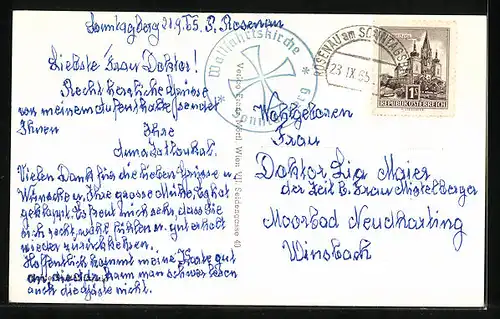 Sonntagberg 21.9.65. P. Rosenau
Liebste Frau Doktor!
Recht herzliche Grüsse
von meinem Aufenthalte sendet
Ihnen
Ihre
Anna
Vielen Dank für die lieben Grüsse u.
Wünsche u. Ihre grosse Mühe. Es hat
geklappt. Es freut mich sehr, dass Sie
sich recht wohl fühlen u. gut erholt
wieder zurückkehren.
Hoffentlich kommt meine Karte gut
an die dar, kann man schwer lesen
auch die Gäste nicht.
Wallfahrtskirche
Sonntagberg
Wien VII Seidengasse
ROSENAU am SONNTAGBERG
23. IX. 65
1S
REPUBLIK ÖSTERREICH
Wohlgeboren
Frau
Doktor Lia Maier
der Zeit b. Frau Mistelberger
Moorbad Neuharting
Wimsbach